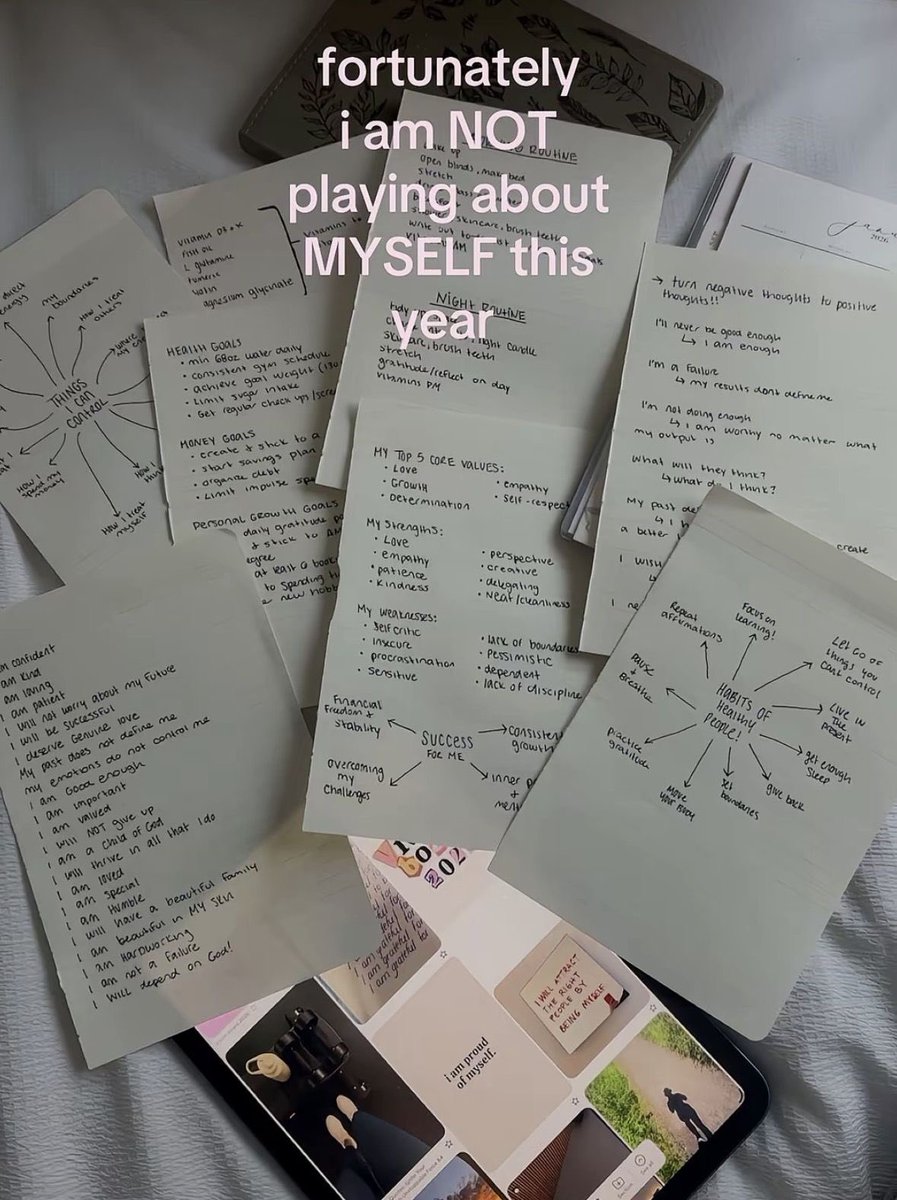 fortunately
i am NOT
playing about
MYSELF this
year
ROUTINE
open blinds, make bed
stretch
skincare, brush teeth
NIGHT ROUTINE
light candle
skincare, brush teeth
stretch
gratitude/reflect on day
vitamins PM
vitamin D3 + K
Fish oil
L glutamine
magnesium glycinate
vitamins
2026
THINGS
I CAN
CONTROL
my
boundaries
How I treat
others
How I
spend my
money
How I treat
myself
HEALTH GOALS
• min 68oz water daily
• consistent gym schedule
• achieve goal weight (130
• Limit sugar intake
• Get regular check ups/
MONEY GOALS
• create & stick to a
• start savings plan
• organize debt
• Limit impulse
PERSONAL GROWTH GOALS
daily gratitude
& stick to
at least 6 book
to spending
new
→ turn negative thoughts to positive
thoughts!!
I'll never be good enough
↳ I am enough
I'm a failure
↳ my results dont define me
I'm not doing enough
↳ I am worthy no matter what
my output is
what will they think?
↳ what do I think?
My past
create
a better
I wish
MY TOP 5 CORE VALUES:
• Love
• Growth
• Determination
• empathy
• self-respect
My Strengths:
• Love
• empathy
• patience
• kindness
• perspective
• creative
• delegating
• Neat/cleanliness
My weaknesses:
• Self critic
• insecure
• procrastination
• sensitive
• lack of boundaries
• Pessimistic
• dependent
• lack of discipline
SUCCESS
FOR ME
Financial
Freedom &
Stability
consistent
growth
overcoming
my
Challenges
inner
HABITS OF
HEALTHY
PEOPLE!
Repeat
affirmations
Focus on
learning!
Let go of
things you
cant control
Live in
the
present
get enough
sleep
give back
set
boundaries
Move
your body
Practice
gratitude
Pause
&
Breathe
am confident
am kind
am loving
I am patient
I will not worry about my future
I will be successful
I deserve genuine love
My past does not define me
my emotions do not control me
I am Good enough
I am important
I am valued
I will NOT give up
I am a child of God
I will thrive in all that I do
I am loved
I am special
I am Humble
I will have a beautiful family
I am beautiful in MY skin
I am Hardworking
I am not a failure
I will depend on God!
I am grateful for
I am grateful for
I WILL ATTRACT
THE RIGHT
PEOPLE BY
BEING MYSELF
i am proud
of myself.